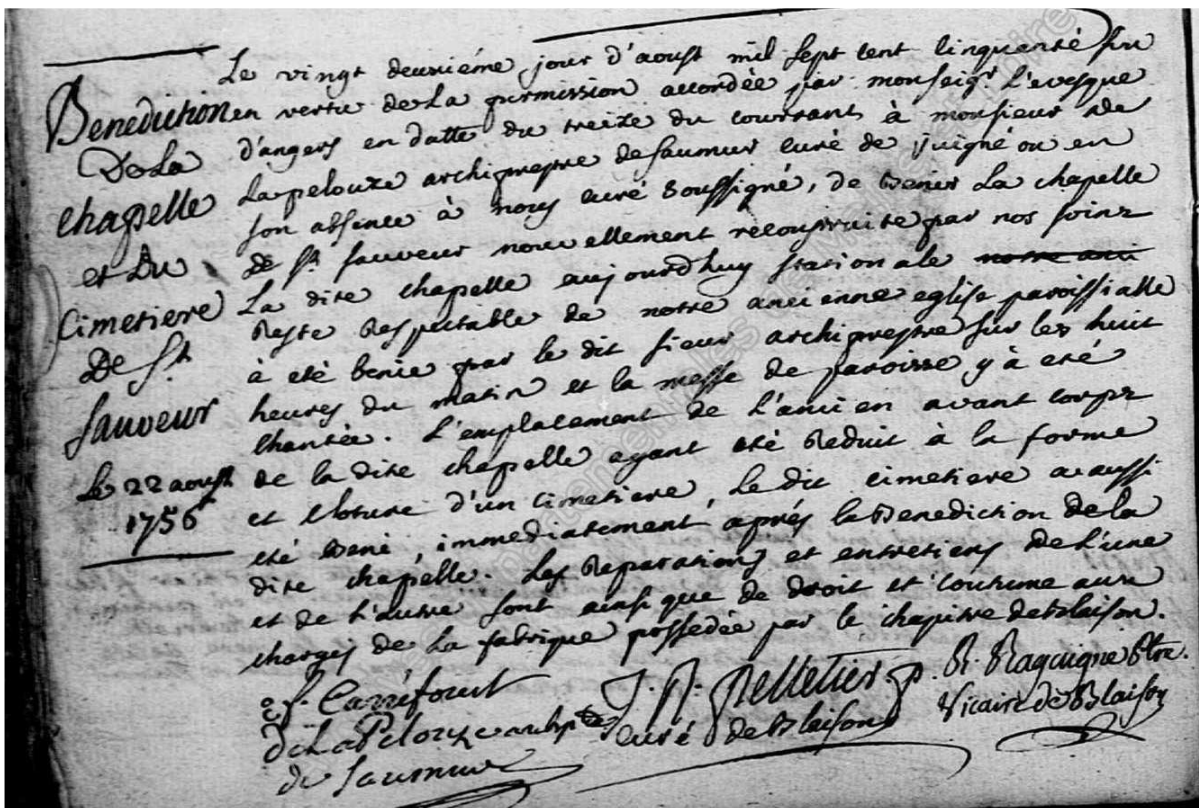 Benediction
De La
chapelle
et Du
Cimetiere
De St
Sauveur
Le 22 aoust
1756
Le vingt deuxiéme jour d'aoust mil sept cent cinquente six
en vertu de La permission accordée par monseigr L'evesque
d'angers en datte du treize du courrant à monsieur De
Lapelouze archiprestre de Saumur curé de juigné ou en
son absence à nous curé soussigné, de benir La chapelle
de St Sauveur nouvellement reconstruite par nos soins
La dite chapelle aujourd'huy stationale notre anci
Reste Respectable de notre ancienne eglise paroissialle
à eté benie par le dit sieur archiprestre sur les huit
heures du matin et la messe de paroisse y à eté
chantée. L'emplacement de L'ancien avant corps
de la dite chapelle ayant eté Reduit à la forme
et cloture d'un cimetiere, Le dit cimetiere a aussi
eté beni, immediatement aprés la Benediction de la
dite chapelle. Les Reparations et entretiens de L'une
et de L'autre sont ainsi que de droit et coutume aux
charges de La fabrique possedée par le chapitre de Blaison.
f. Carrefour
De La Pelouze archiptre
de Saumur
J. R. Pelletier
curé de Blaison
R. Raguigne Ptre.
Vicaire de Blaison